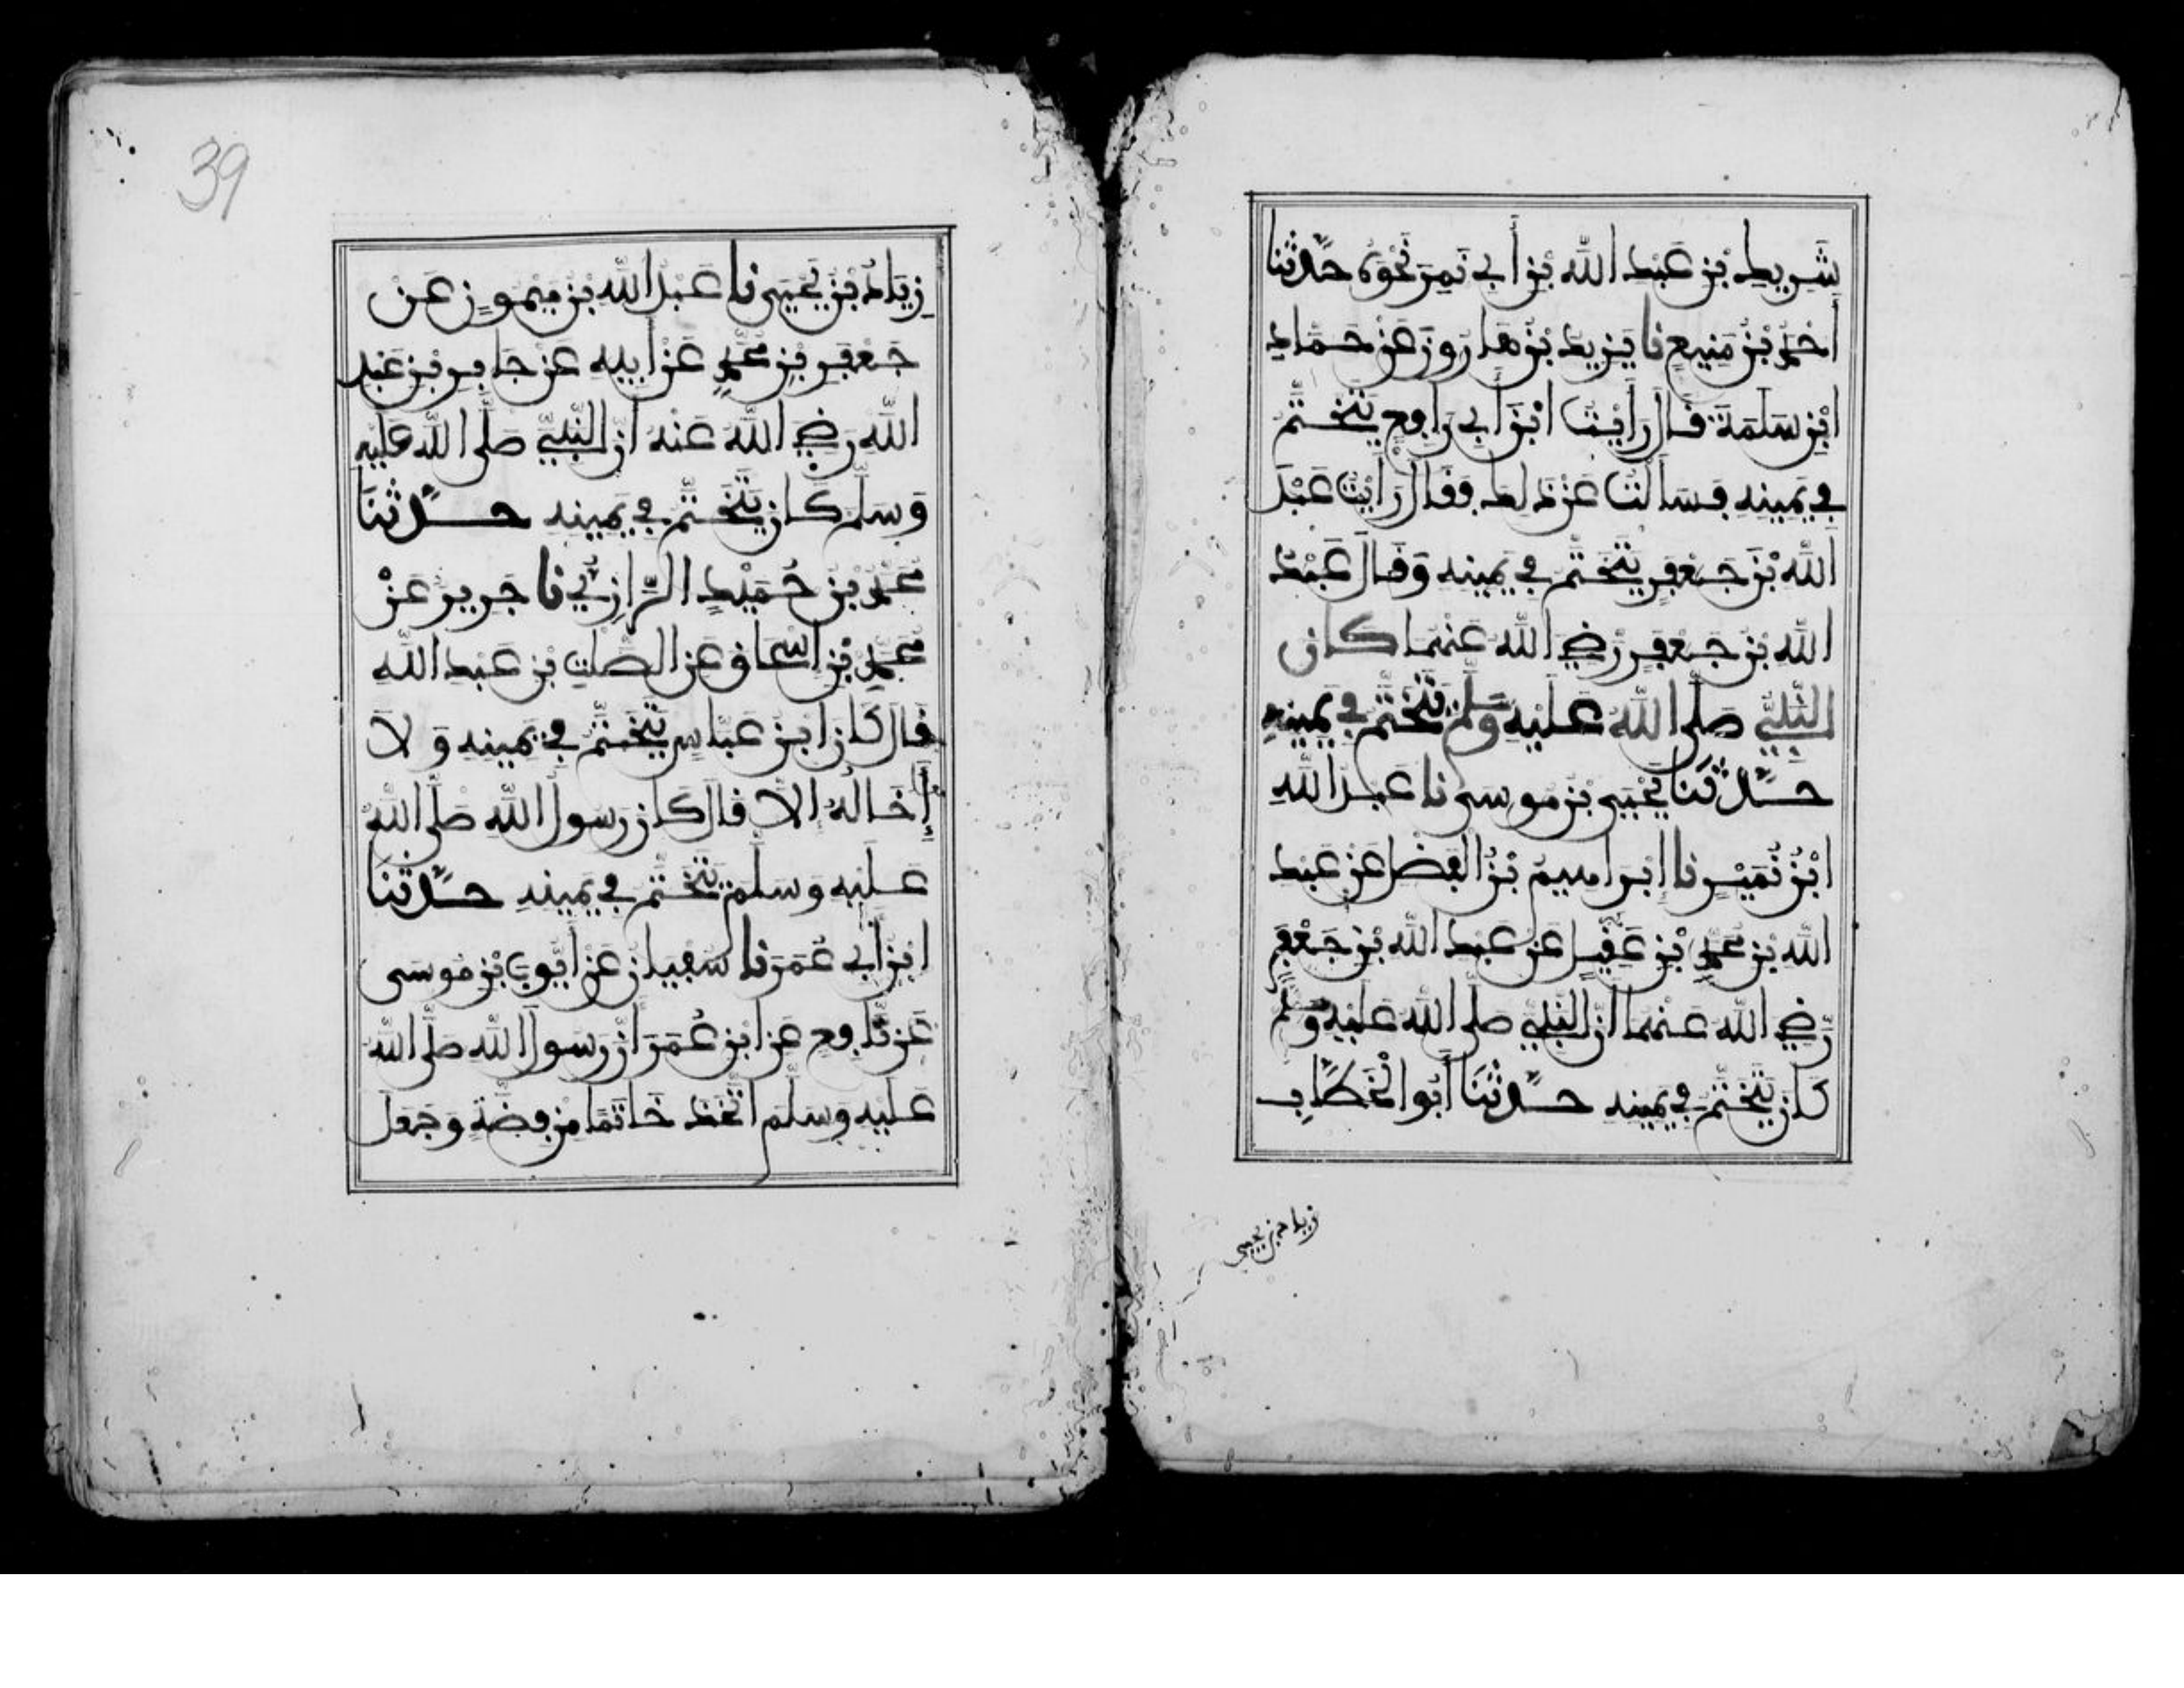 شَرِيكِ بْنِ عَبْدِ اللَّهِ بْنِ أَبِي نَمِرٍ نَحْوَهُ حَدَّثَنَا
أَحْمَدُ بْنُ مَنِيعٍ نَا يَزِيدُ بْنُ هَارُونَ عَنْ حَمَّادِ
ابْنِ سَلَمَةَ قَالَ رَأَيْتُ ابْنَ أَبِي رَافِعٍ يَتَخَتَّمُ
فِي يَمِينِهِ فَسَأَلْتُ عَنْ ذَلِكَ فَقَالَ رَأَيْتُ عَبْدَ
اللَّهِ بْنَ جَعْفَرٍ يَتَخَتَّمُ فِي يَمِينِهِ وَقَالَ عَبْدُ
اللَّهِ بْنُ جَعْفَرٍ رَضِيَ اللَّهُ عَنْهُمَا كَانَ
النَّبِيُّ صَلَّى اللَّهُ عَلَيْهِ وَسَلَّمَ يَتَخَتَّمُ فِي يَمِينِهِ
حَدَّثَنَا يَحْيَى بْنُ مُوسَى نَا عَبْدُ اللَّهِ
ابْنُ نُمَيْرٍ نَا إِبْرَاهِيمُ بْنُ الْفَضْلِ عَنْ عَبْدِ
اللَّهِ بْنِ مُحَمَّدِ بْنِ عَقِيلٍ عَنْ عَبْدِ اللَّهِ بْنِ جَعْفَرٍ
رَضِيَ اللَّهُ عَنْهُمَا أَنَّ النَّبِيَّ صَلَّى اللَّهُ عَلَيْهِ وَسَلَّمَ
كَانَ يَتَخَتَّمُ فِي يَمِينِهِ حَدَّثَنَا أَبُو الْخَطَّابِ
زياد بن يحيى
39
زِيَادُ بْنُ يَحْيَى نَا عَبْدُ اللَّهِ بْنُ مَيْمُونٍ عَنْ
جَعْفَرِ بْنِ مُحَمَّدٍ عَنْ أَبِيهِ عَنْ جَابِرِ بْنِ عَبْدِ
اللَّهِ رَضِيَ اللَّهُ عَنْهُ أَنَّ النَّبِيَّ صَلَّى اللَّهُ عَلَيْهِ
وَسَلَّمَ كَانَ يَتَخَتَّمُ فِي يَمِينِهِ حَدَّثَنَا
مُحَمَّدُ بْنُ حُمَيْدٍ الرَّازِيُّ نَا جَرِيرٌ عَنْ
مُحَمَّدِ بْنِ إِسْحَاقَ عَنِ الصَّلْتِ بْنِ عَبْدِ اللَّهِ
قَالَ كَانَ ابْنُ عَبَّاسٍ يَتَخَتَّمُ فِي يَمِينِهِ وَلَا
إِخَالُهُ إِلَّا قَالَ كَانَ رَسُولُ اللَّهِ صَلَّى اللَّهُ
عَلَيْهِ وَسَلَّمَ يَتَخَتَّمُ فِي يَمِينِهِ حَدَّثَنَا
ابْنُ أَبِي عُمَرَ نَا سُفْيَانُ عَنْ أَيُّوبَ بْنِ مُوسَى
عَنْ نَافِعٍ عَنِ ابْنِ عُمَرَ أَنَّ رَسُولَ اللَّهِ صَلَّى اللَّهُ
عَلَيْهِ وَسَلَّمَ اتَّخَذَ خَاتَمًا مِنْ فِضَّةٍ وَجَعَلَ